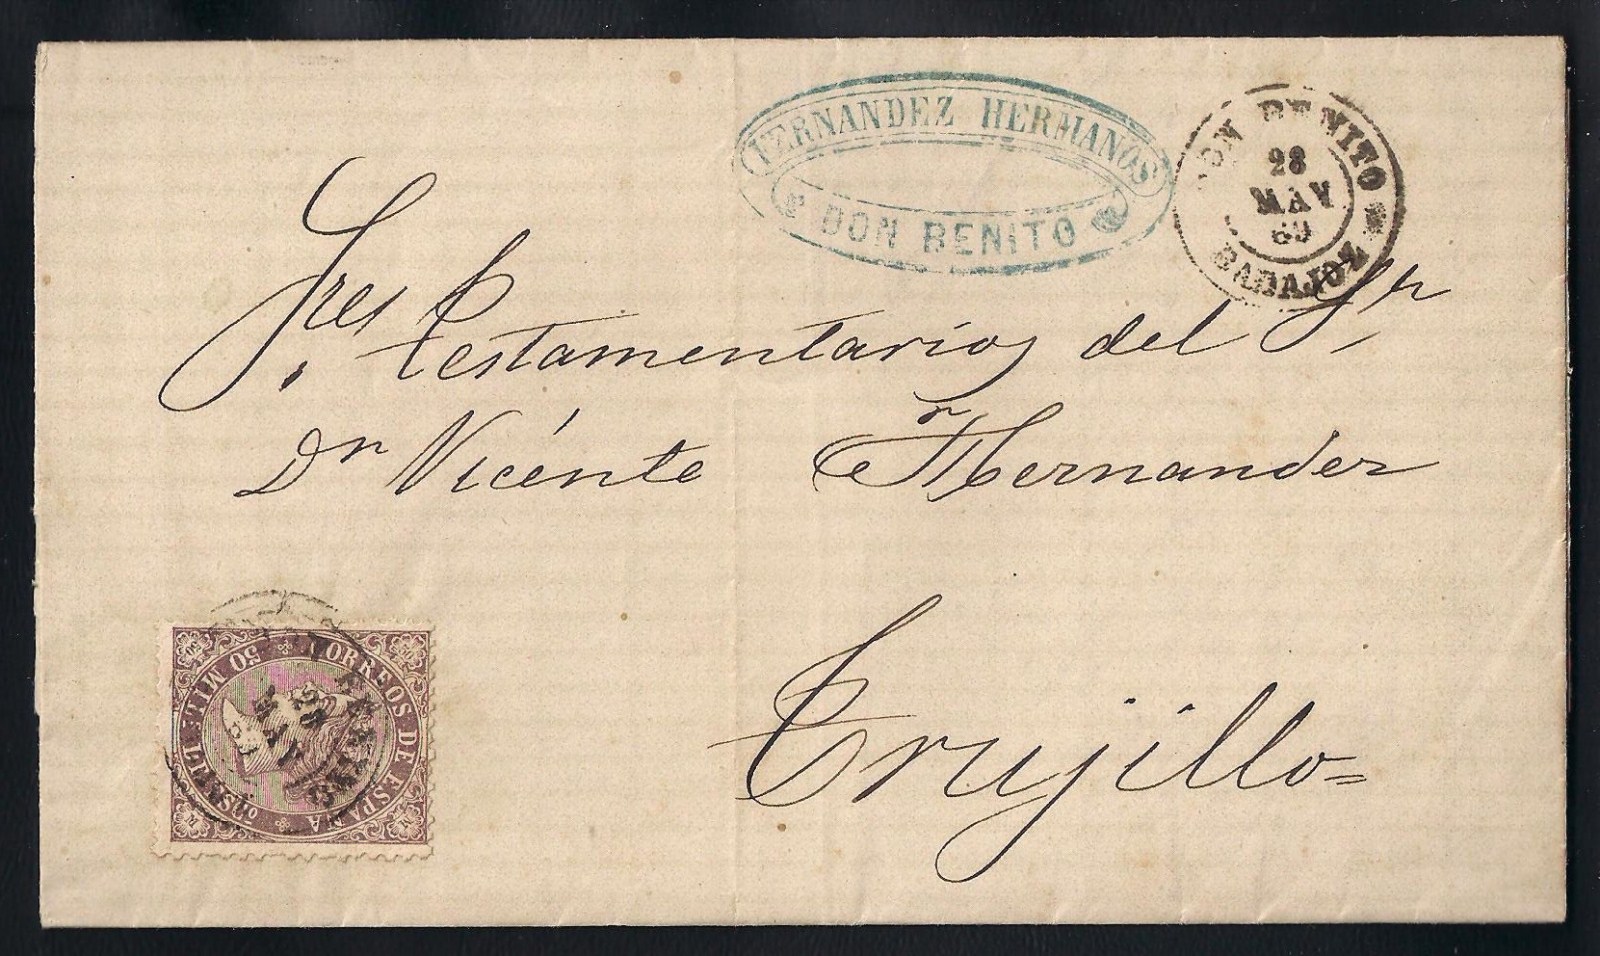 FERNANDEZ HERMANOS
DON BENITO
DON BENITO
28
MAY
69
BADAJOZ
Sres Testamentarios del Sr
Dn Vicénte Hernandez
Trujillo=
CORREOS DE ESPAÑA
50 MILS. DE ESO.
28
MAY
69